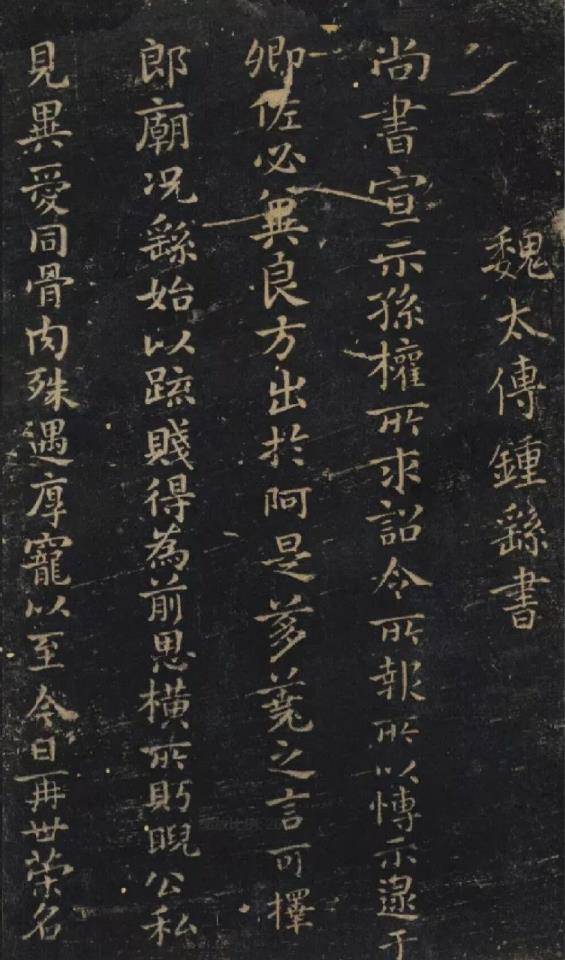 魏太傅鍾繇書
尚書宣示孫權所求詔令所報所以博示逮于
卿佐必冀良方出於阿是芻蕘之言可擇
郎廟況繇始以疏賤得為前恩橫所眄睨公私
見異愛同骨肉殊遇厚寵以至今日再世榮名